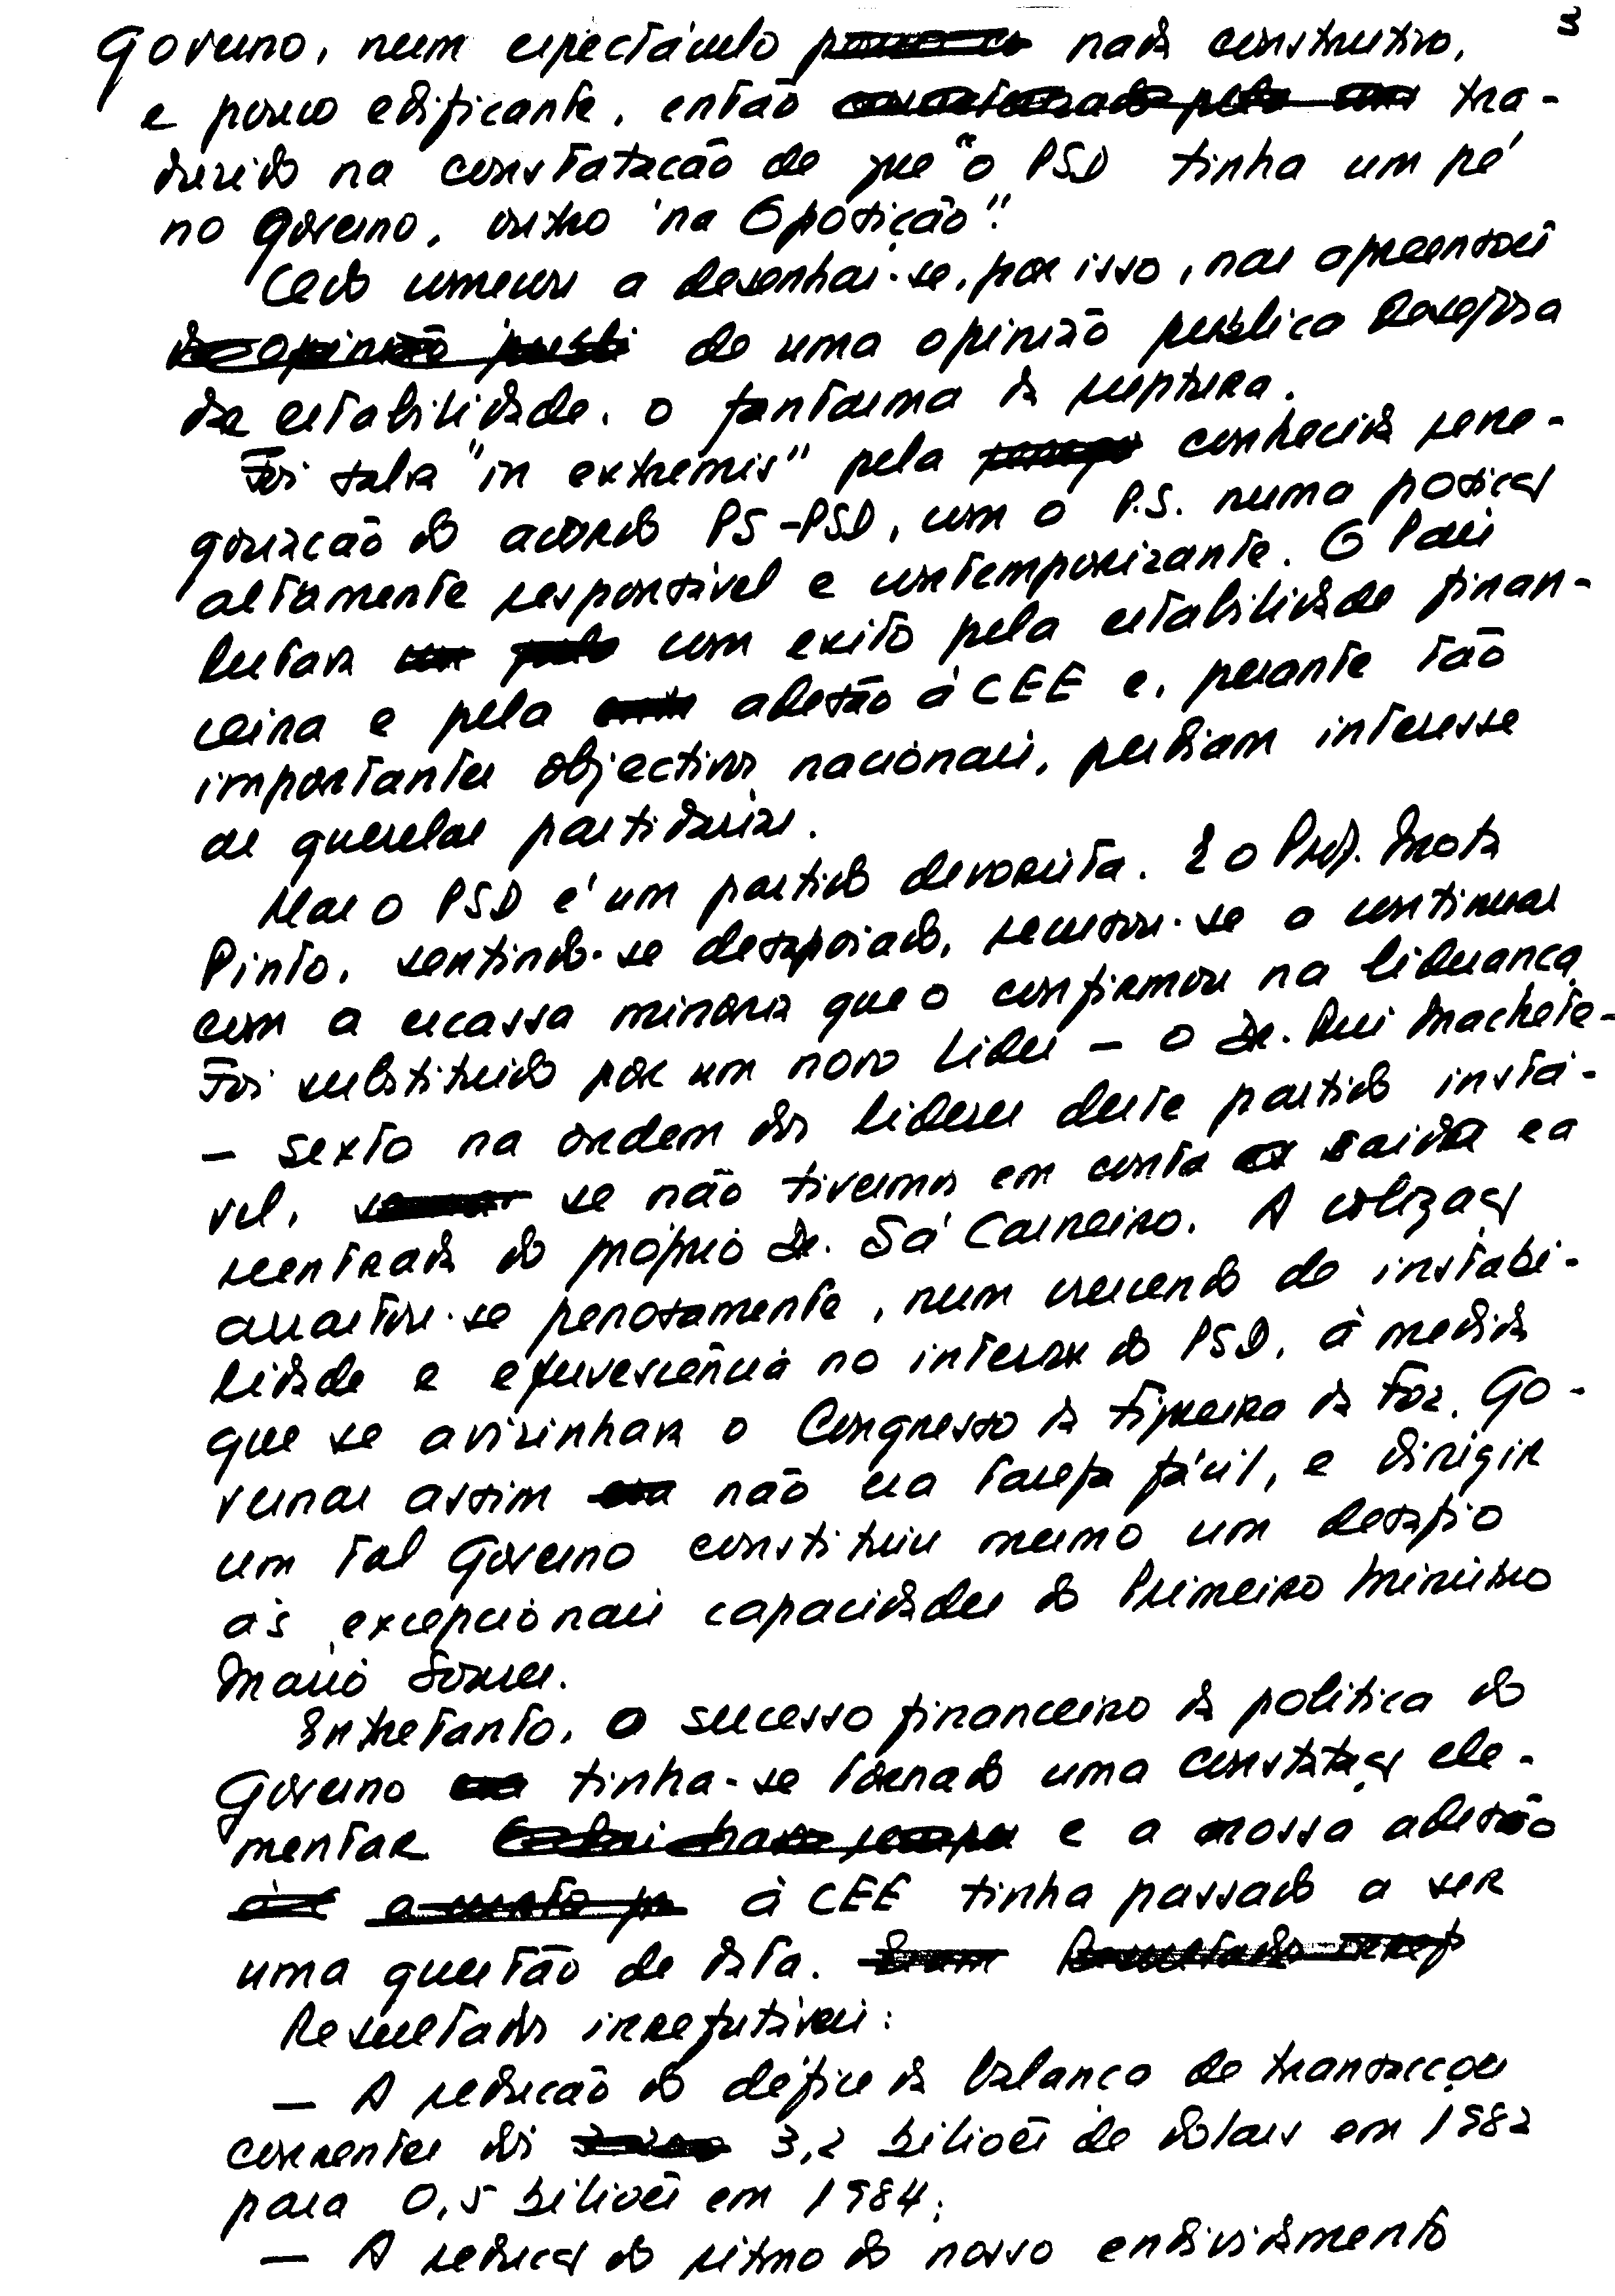 3
Governo, num espectáculo nada construtivo,
e pouco edificante, então tra-
duzido na constatação de que "o PSD tinha um pé
no Governo, outro na Oposição".
Cedo começou a desenhar-se, por isso, nas apreensões
de uma opinião pública desejosa
da estabilidade, o fantasma da ruptura.
Foi salva "in extremis" pela conhecida rene-
gociação do acordo PS-PSD, com o P.S. numa posição
altamente responsável e contemporizante. O País
lutava com exito pela estabilidade finan-
ceira e pela adesão à CEE e, perante tão
importantes objectivos nacionais, perdiam interesse
as querelas partidárias.
Mas o PSD é um partido devorista. E o Prof. Mota
Pinto, sentindo-se desapoiado, recusou-se a continuar
com a escassa minoria que o confirmou na liderança.
Foi substituido por um novo lider - o Dr. Rui Machete -
- sexto na ordem dos lideres deste partido instá-
vel, se não tivermos em conta a saida e a
reentrada do próprio Dr. Sá Carneiro. A coligação
arrastou-se penosamente, num crescendo de instabi-
lidade e efervescência no interior do PSD, à medida
que se avizinhava o Congresso da Figueira da Foz. Go-
vernar assim não era tarefa fácil, e dirigir
um tal Governo constituiu mesmo um desafio
às excepcionais capacidades do Primeiro Ministro
Mário Soares.
Entretanto, o sucesso financeiro da politica do
Governo tinha-se tornado uma constatação ele-
mentar e a nossa adesão
à CEE tinha passado a ser
uma questão de data.
Resultados irrefutáveis:
— A redução do défice da balança de transacções
correntes dos 3,2 biliões de dolars em 1982
para 0,5 biliões em 1984;
— A redução do ritmo do nosso endividamento